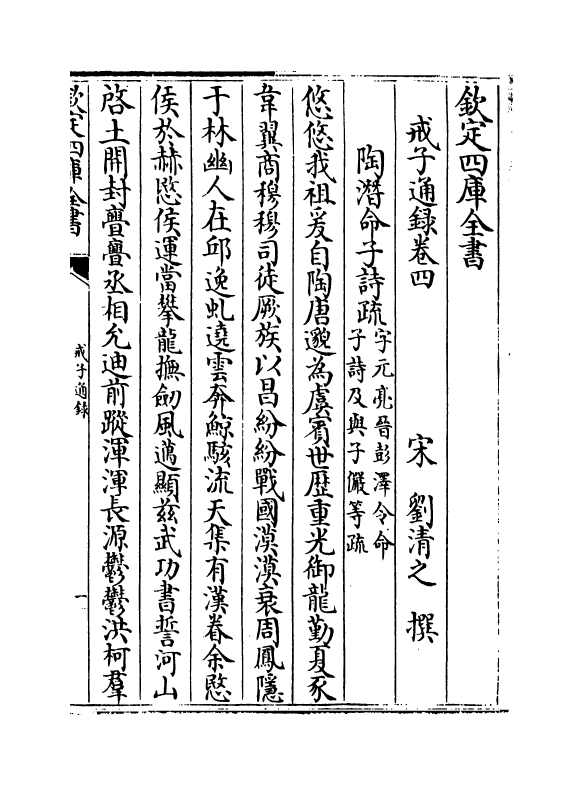 欽定四庫全書
戒子通録卷四
宋　劉清之　撰
陶潛命子詩疏字元亮晉彭澤令命
子詩及與子儼等疏
悠悠我祖爰自陶唐邈為虞賓世歴重光御龍勤夏豕
韋翼商穆穆司徒厥族以昌紛紛戰國漠漠衰周鳳隱
于林幽人在邱逸虬遶雲奔鯨駭流天集有漢眷余愍
侯於赫愍侯運當攀龍撫劍風邁顯兹武功書誓河山
啓土開封亹亹丞相允迪前蹤渾渾長源鬱鬱洪柯羣
欽定四庫全書
戒子通錄
一